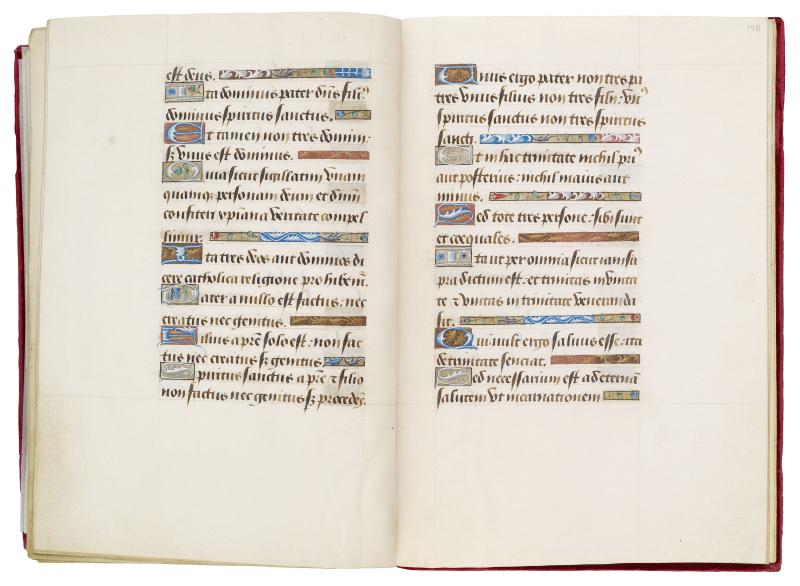 est deus.
Ita dominus pater dūs fili⁹
dominus spiritus sanctus.
Et tamen non tres domini:
sʒ vnus est dominus.
Quia sicut sigillatim vnam
quamqʒ personam deum et dūm
confiteri xpiana veritate compel
limur.
Ita tres deos aut dominos di
cere catholica religione prohibem̄.
Pater a nullo est factus: nec
creatus nec genitus.
Filius a prē solo est: non fac
tus nec creatus sʒ genitus
Spiritus sanctus a prē ⁊ filio
non factus nec genitus sʒ procedēs.
198
Vnus ergo pater non tres pa
tres vnus filius non tres filii: vn⁹
spiritus sanctus non tres spiritus
sancti.
Et in hac trinitate nichil pri⁹
aut posterius: nichil maius aut
minus.
Sed tote tres persone: sibi sunt
et coequales.
Ita ut per omnia sicut iam su
pra dictum est: et trinitas in vnita
te ⁊ vnitas in trinitate veneranda
sit.
Qui vult ergo saluus esse: ita
de trinitate senciat.
Sed necessarium est ad eternā
salutem vt incarnationem